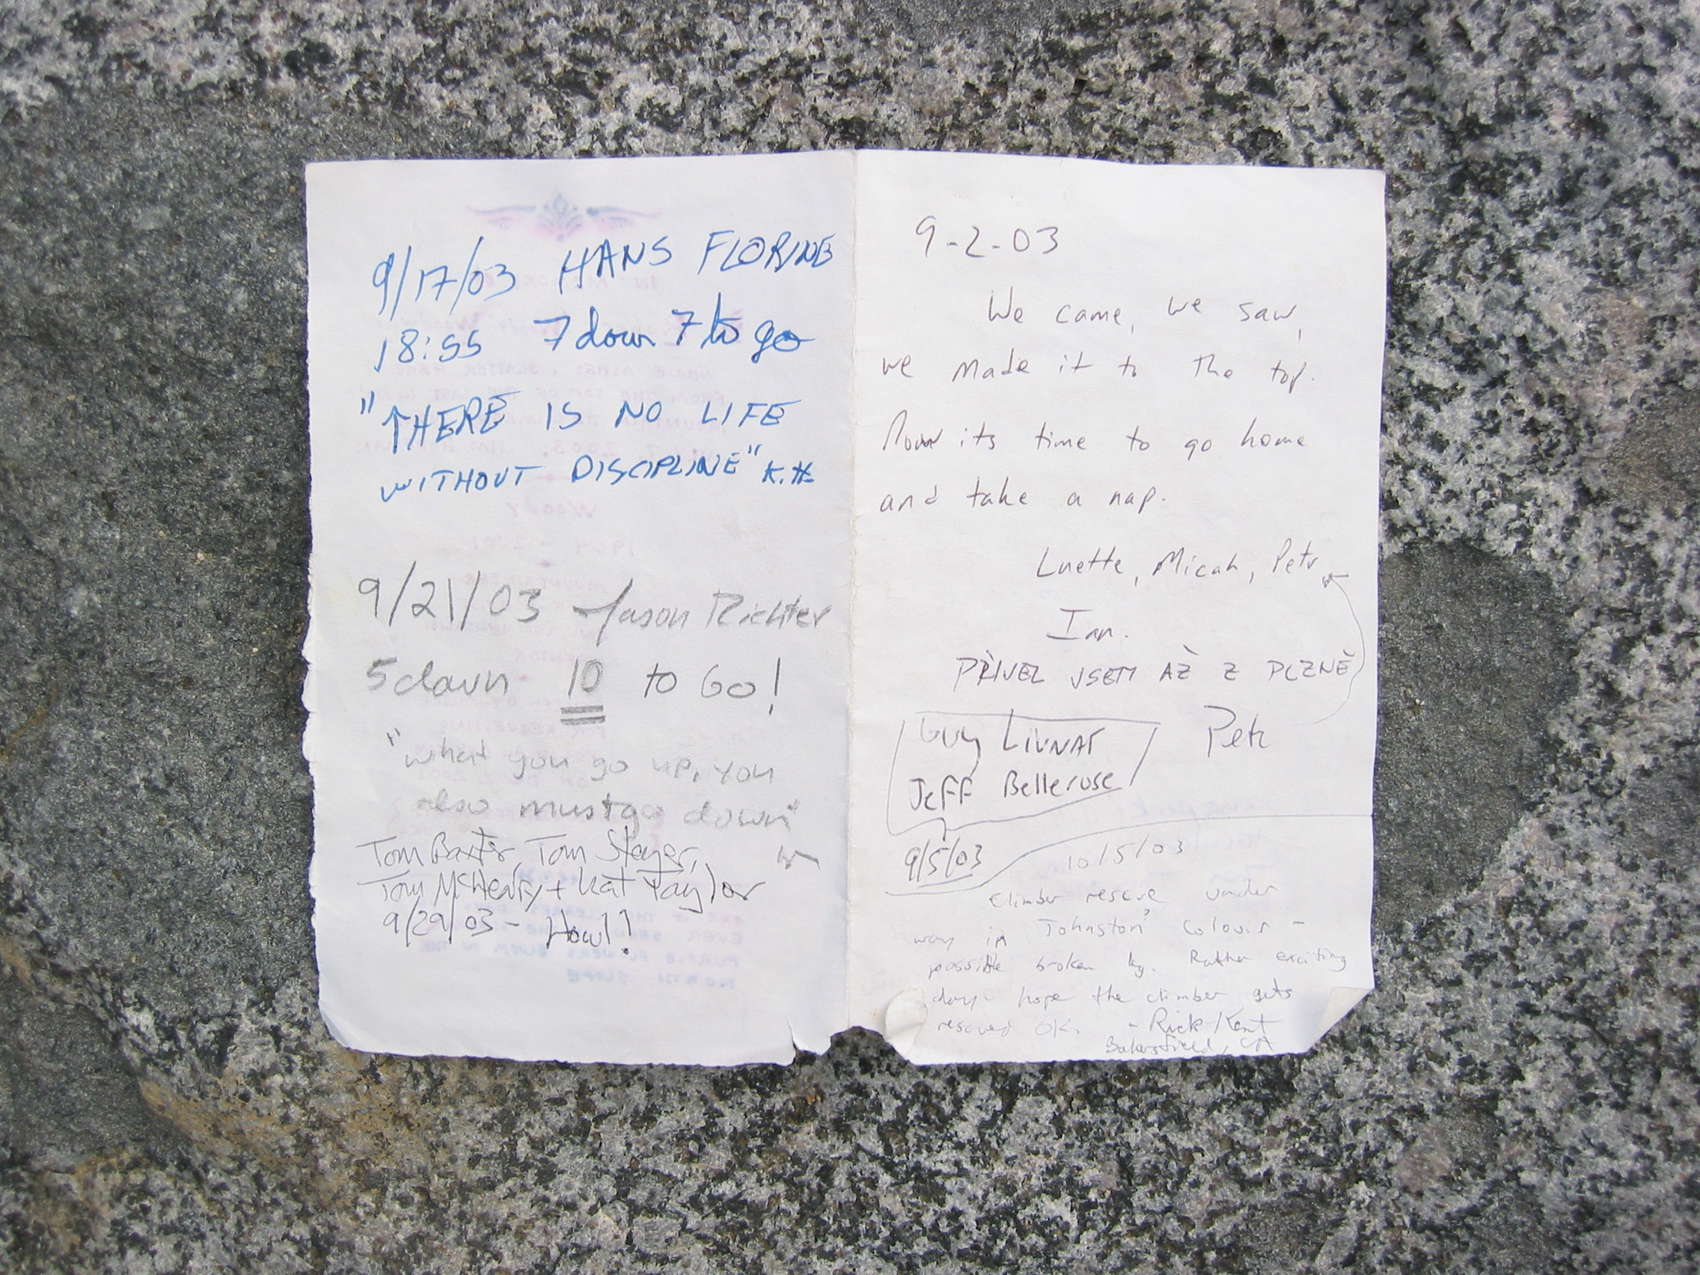 9/17/03 HANS FLORINE
18:55 7 down 7 to go
"THERE IS NO LIFE
WITHOUT DISCIPLINE" K.H.
9/21/03 Jason Richter
5 down 10 to Go!
"what you go up, you
also must go down"
Tom Baxter, Tom Steyer,
Tom McHenry + Kat Taylor
9/29/03 - Howl!
9-2-03
We came, we saw,
we made it to the top.
Now its time to go home
and take a nap.
Luette, Micah, Petr
Ian.
PŘIVEL JSEM AŽ Z PLZNĚ
Petr
Guy LIVNAT
Jeff Bellerose
9/5/03
10/5/03
Climber rescue under
way in Johnston Colouir -
possible broken leg. Rather exciting
day - hope the climber gets
rescued OK. - Rick Kent
Bakersfield, CA